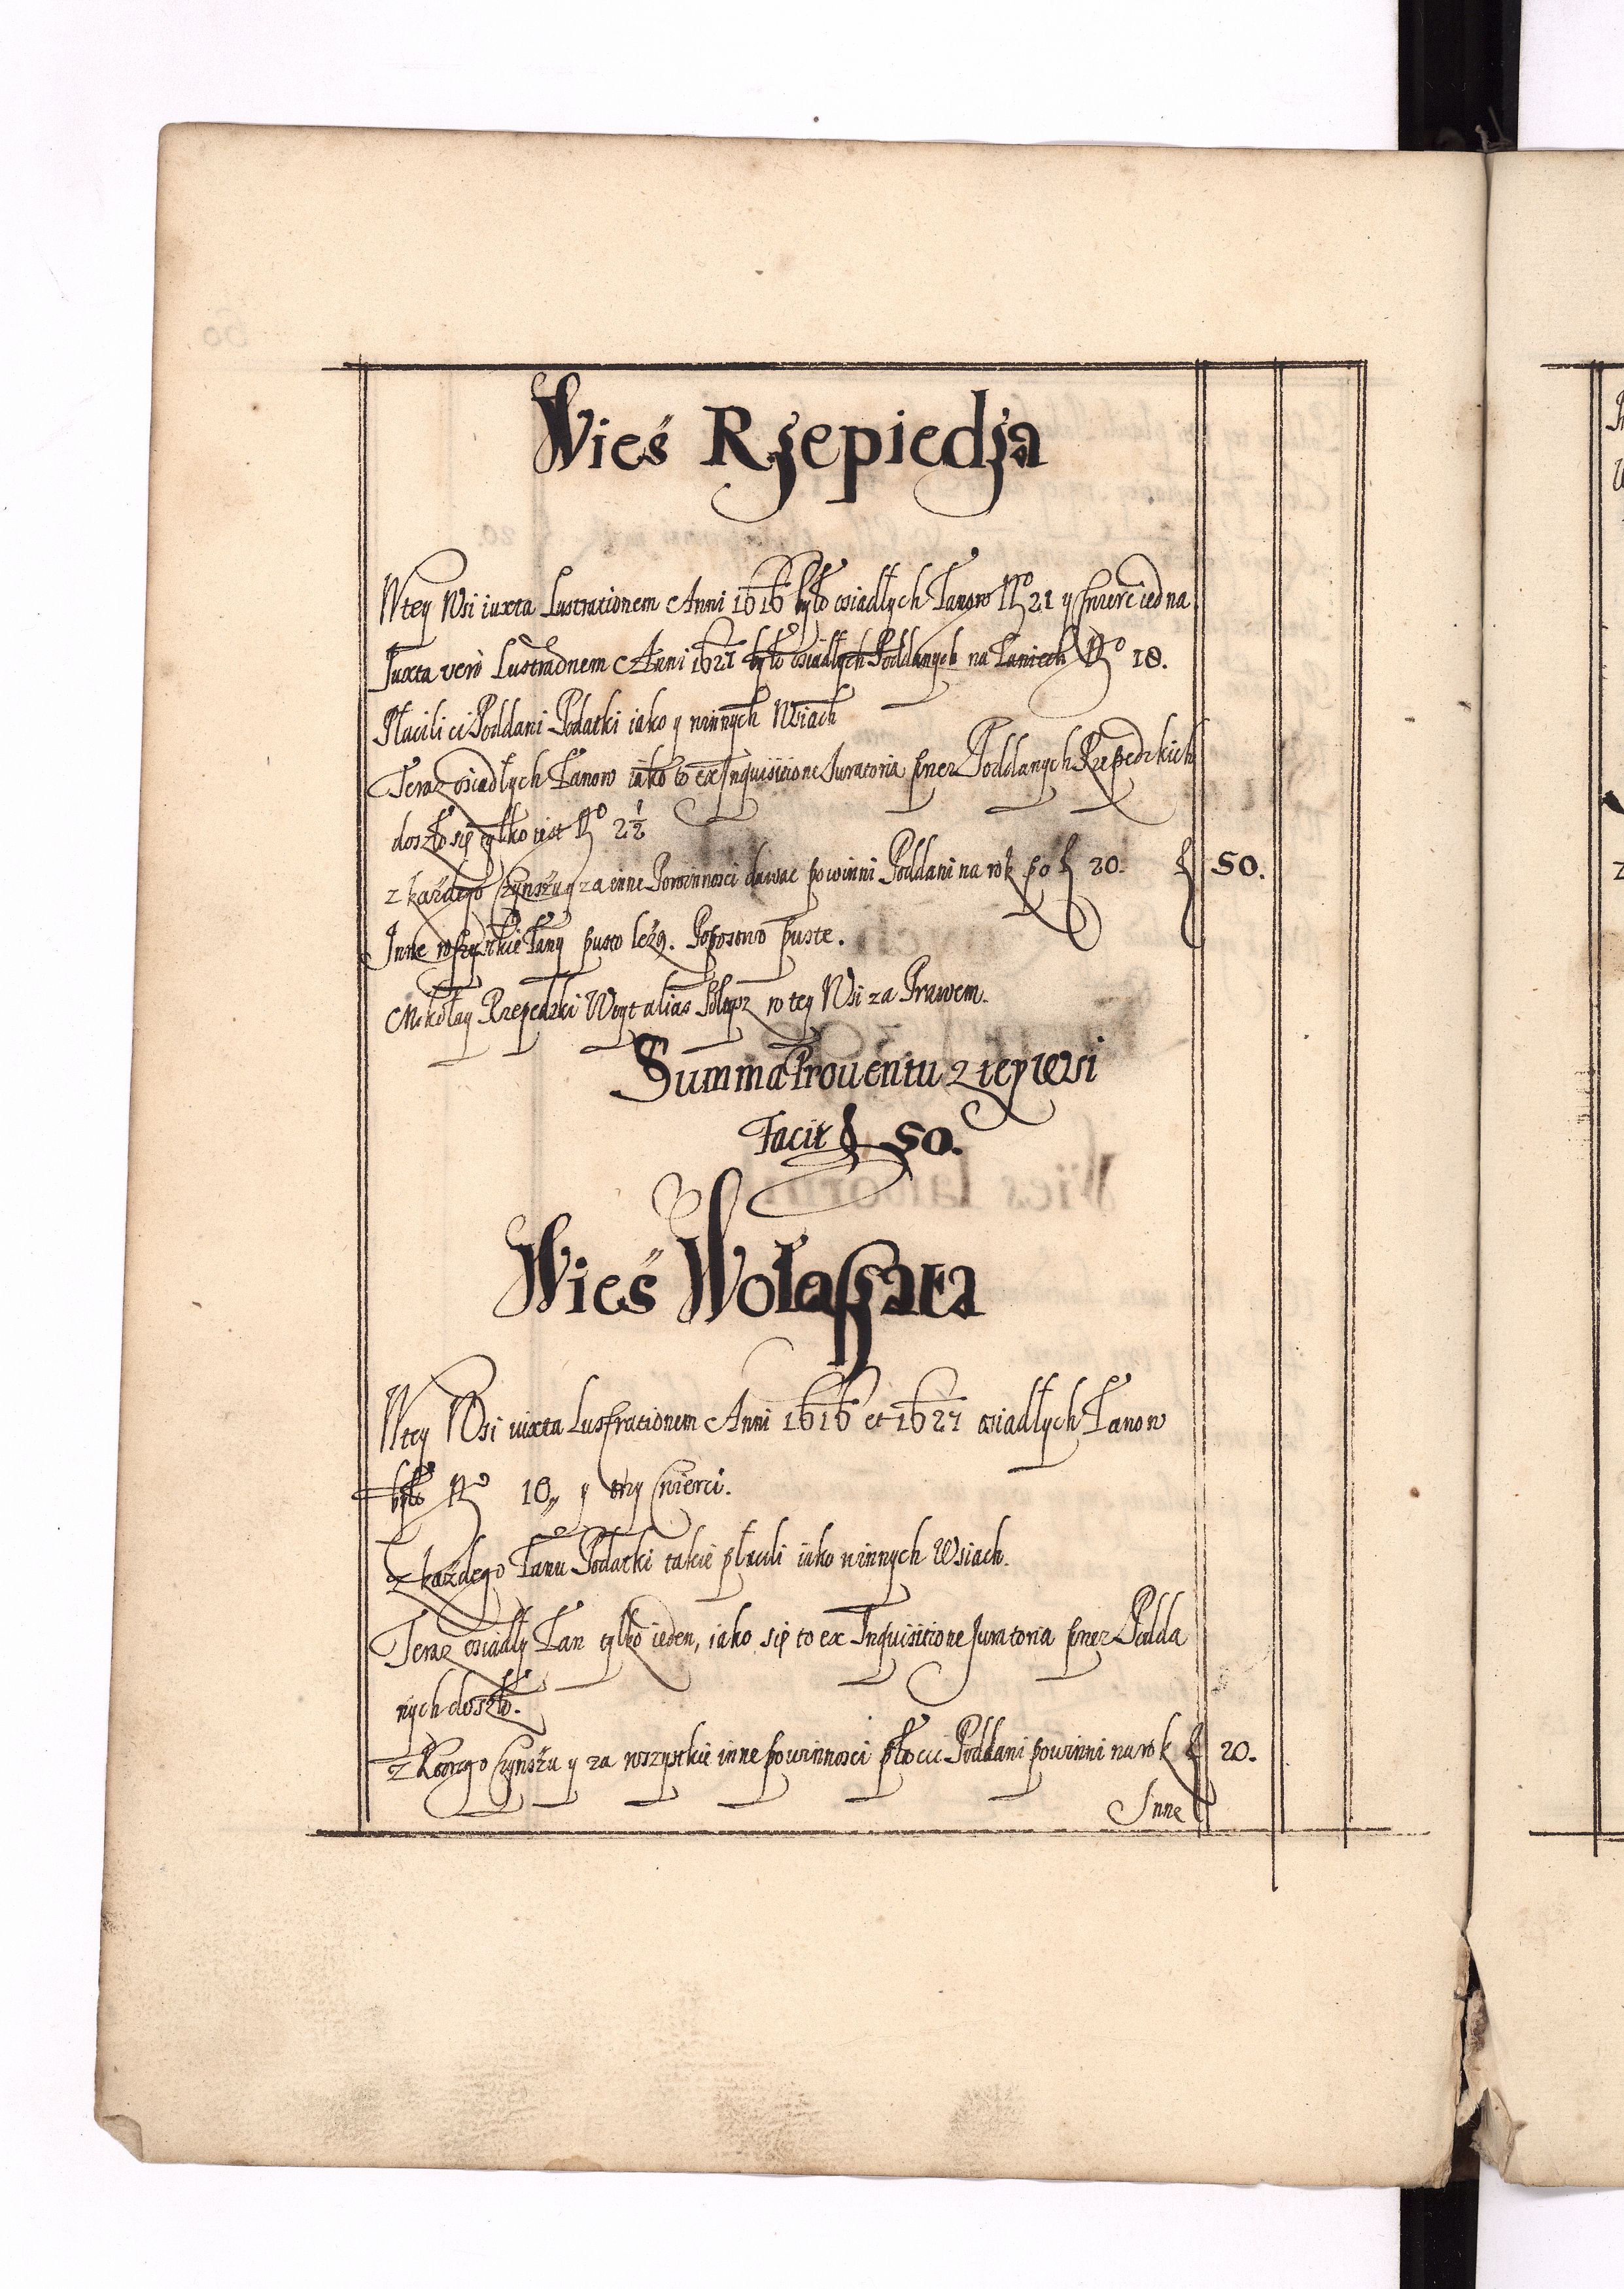 Wieś Rzepiedza
W tey Wsi iuxta Lustrationem Anni 1616 było osiadłych Łanow No 21 y szwierc iedna
Juxta vero Lustraōnem Anni 1621 było osiadłych Poddanych na Łaniech No 18.
Płacili ci Poddani Podatki iako y w innych Wsiach
Teraz osiadłych Łanow iako to ex Inquisitione Juratoria przez Poddanych Rzepedzkich
doszło się tylko iest No 2½
z każdego Czynszu y za inne Powinnosci dawac powinni Poddani na rok po f 20. f 50.
Inne wszystkie Łany pusto leżą. Popostwo puste.
Mikołay Rzepedzki Woyt alias Sołtys w tey Wsi za Prawem.
Summa Prouentu z tey wsi
Facit f 50.
Wieś Wołaszata
W tey Wsi iuxta Lustrationem Anni 1616 et 1621 osiadłych Łanow
było No 10,, y trzy cwierci.
z każdego Łanu Podatki takie płacili iako w innych Wsiach.
Teraz osiadły Łan tylko ieden, iako się to ex Inquisitione Juratoria przez Podda
nych doszło.
z ktorego Czynszu y za wszystkie inne powinnosci płacic Poddani powinni na rok f 20.
Inne